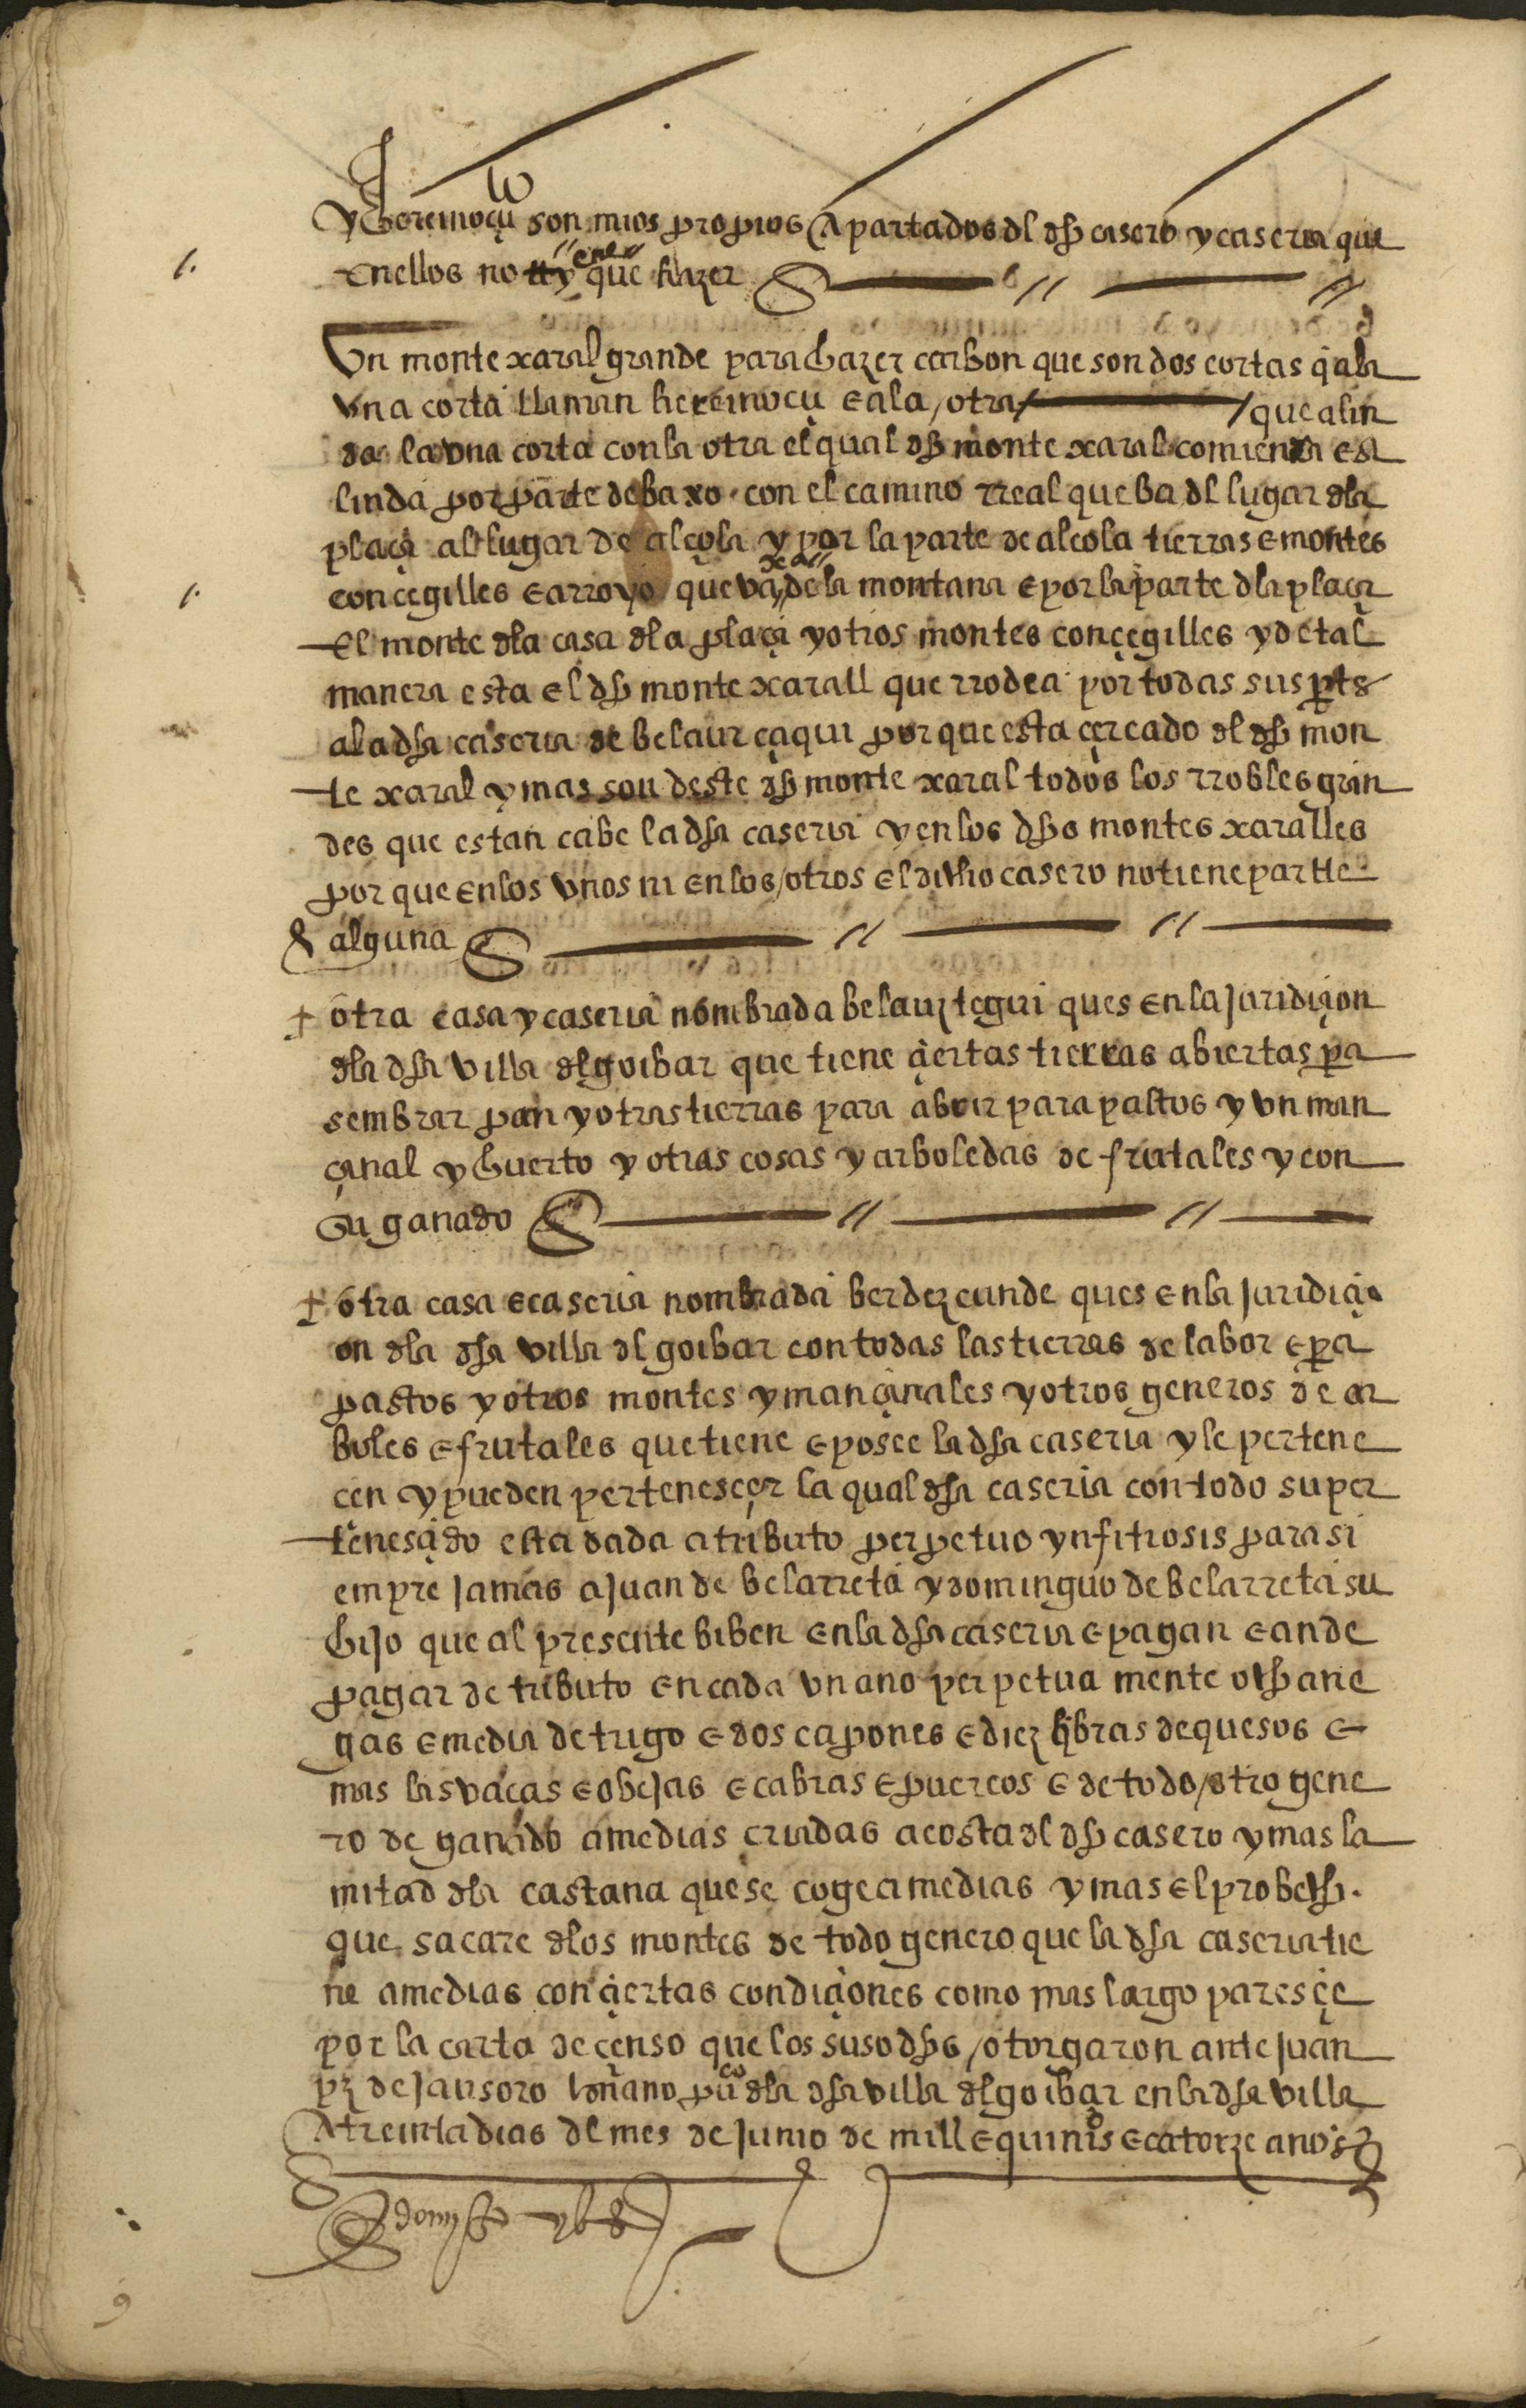 y heremoçu son mios propios apartados dl dho casero y caseria que
enellos no tiene que hazer
Un monte xaral grande para hazer carbon que son dos cortas q̃ ala
una corta llaman heremoçu e ala otra que alin
da la una corta con la otra el qual dho monte xaral comiença e
linda por parte debaxo con el camino rreal que ba dl lugar dla
plaça al lugar de alçola y por la parte de alçola tierras e montes
conçegilles e arroyo que va de la montana e por la parte dla plaça
El monte dla casa dla plaça y otros montes conçegilles y de tal
manera esta el dho monte xarall que rrodea por todas sus ptes
ala dha caseria de belaurçaqui por que esta çercado dl dho mon
te xaral y mas son deste dho monte xaral todos los rrobles gran
des que estan cabe la dha caseria y en los dhos montes xaralles
por que en los unos ni en los otros el dicho casero no tiene parte
alguna
+ otra casa y caseria nombrada belauztegui ques en la juridiçion
dla dha villa delgoibar que tiene çiertas tierras abiertas pa
sembrar pan y otras tierras para abrir para pastos y un man
çanal y huerto y otras cosas y arboledas de frutales y con
su ganado
+ otra casa e caseria nombrada berdezcunde ques en la juridiçi
on dla dha villa delgoibar con todas las tierras de labor e pa
pastos y otros montes y mançanales y otros generos de ar
boles e frutales que tiene e posee la dha caseria y le pertene
cen y pueden pertenesçer la qual dha caseria con todo su per
tenesçido esta dada a tributo perpetuo ynfitiosis para si
empre jamas a juan de belarreta y dominguo de belarreta su
hijo que al presente biben en la dha caseria e pagan e an de
pagar de tributo en cada un ano perpetua mente ocho ane
gas e media de trigo e dos capones e diez libras de quesos e
mas las vacas e obejas e cabras e puercos e de todo otro gene
ro de ganado a medias criadas a costa dl dho casero y mas la
mitad dla castana que se coge a medias y mas el probecho
que sacare dlos montes de todo genero que la dha caseria tie
ne a medias con çiertas condiçiones como mas largo paresçe
por la carta de çenso que los susodhos otorgaron ante juan
pz de jausoro esno puco dla dha villa delgoibar en la dha villa
A treinta dias dl mes de junio de mill e quinios e catorze anos